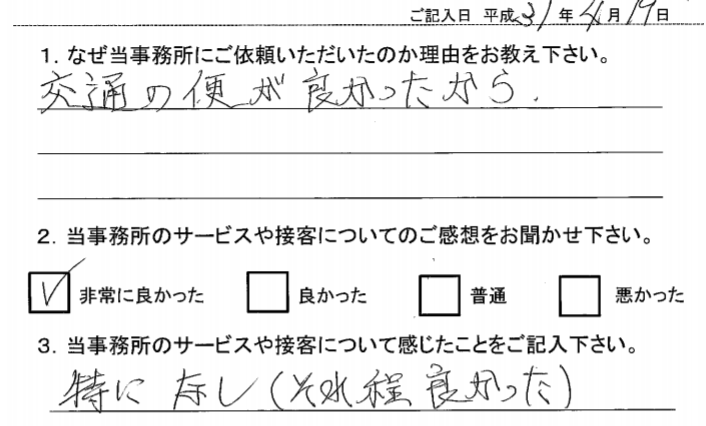 ご記入日 平成 31 年 4 月 19 日
1. なぜ当事務所にご依頼いただいたのか理由をお教え下さい。
交通の便が良かったから.
2. 当事務所のサービスや接客についてのご感想をお聞かせ下さい。
非常に良かった 良かった 普通 悪かった
3. 当事務所のサービスや接客について感じたことをご記入下さい。
特になし(それ程良かった)